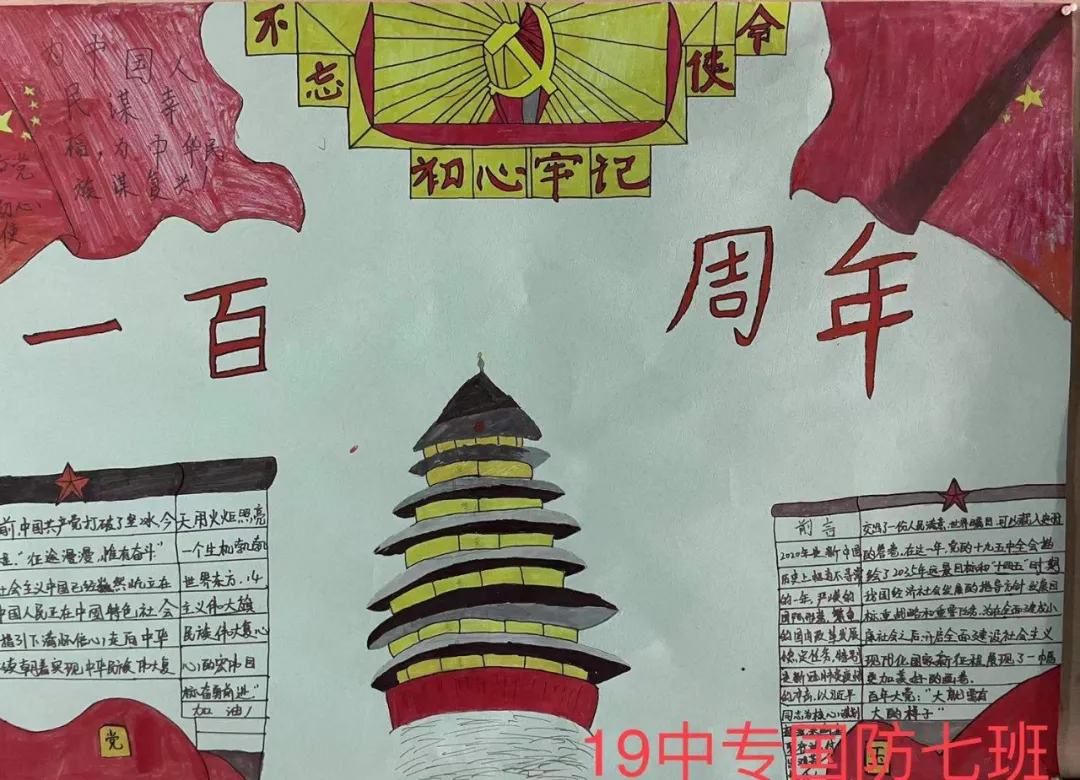 不忘
初心牢记
使命
中国人
民谋幸
福,为中华民
族谋复兴!
党
初心
使
一百
周年
前,中国共产党打破了坚冰,今
是,“征途漫漫,惟有奋斗”
社会主义中国已经巍然屹立在
中国人民正在中国特色社会
指引下满怀信心,走后中华
续朝着实现中华民族伟大复
天用火炬照亮
一个生机勃勃
世界东方,14
主义伟大旗
民族伟大复心
心的宏伟目
标奋勇前进。”
加油!
前言
2020年是新中国
历史上极不寻常
的一年,严峻的
国际形势,繁重
的国内改革发展
稳定任务,特别
是新冠肺炎疫情
的冲击,以习近平
同志为核心
交出了一份人民满意、世界瞩目、可以载入史册
的答卷。在这一年,党的十九五中全会描
绘了2035年远景目标和“十四五”时期
我国经济社会发展的指导方针发展目
标重战略和重要任务,为在全面建成小
康社会之后开启全面建设社会主义
现代化国家新征程展现了一幅
更加美好的画卷。
百年大党:“大就要有
大的样子”
党
19中专国防七班